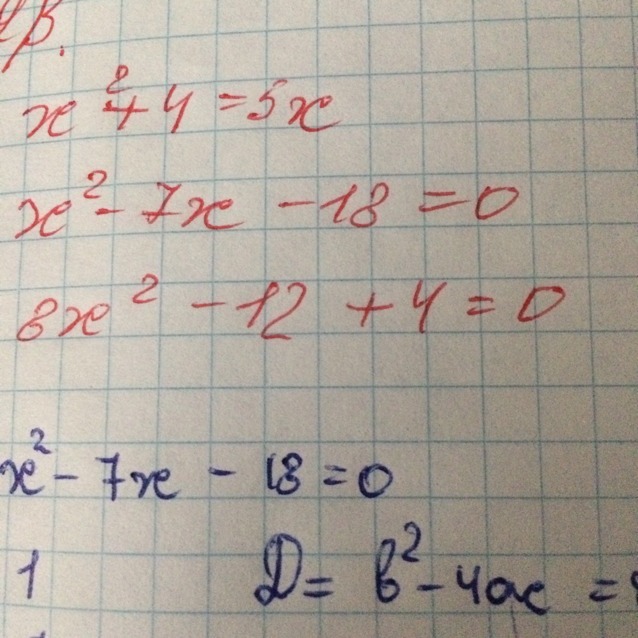 x² + 4 = 5x
x² - 7x - 18 = 0
8x² - 12 + 4 = 0
x² - 7x - 18 = 0
1 D = b² - 4ac =